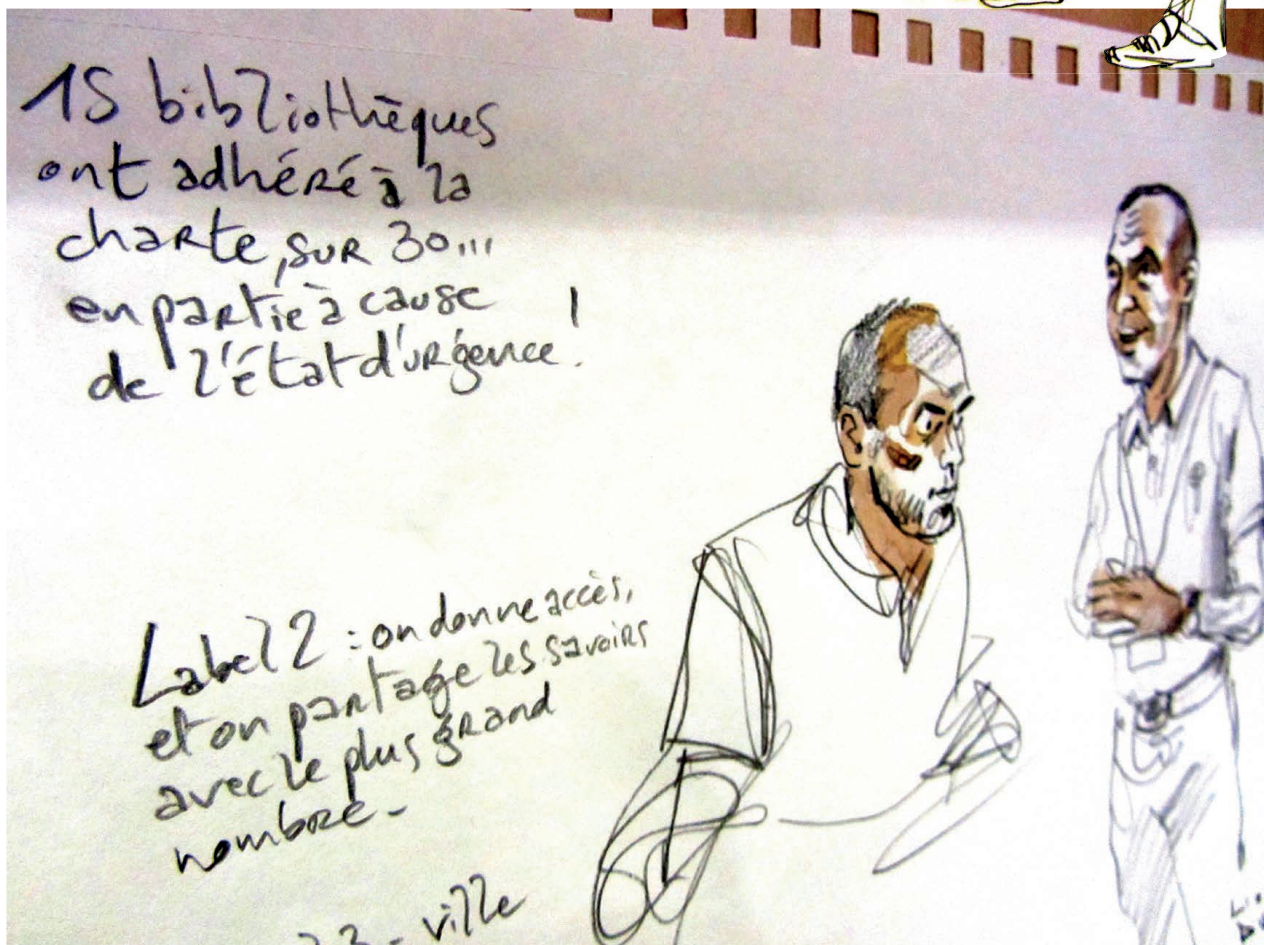 15 bibliothèques
ont adhéré à la
charte, sur 30...
en partie à cause
de l'État d'urgence !
Label 2 : on donne accès,
et on partage les savoirs
avec le plus grand
nombre -
3 - ville